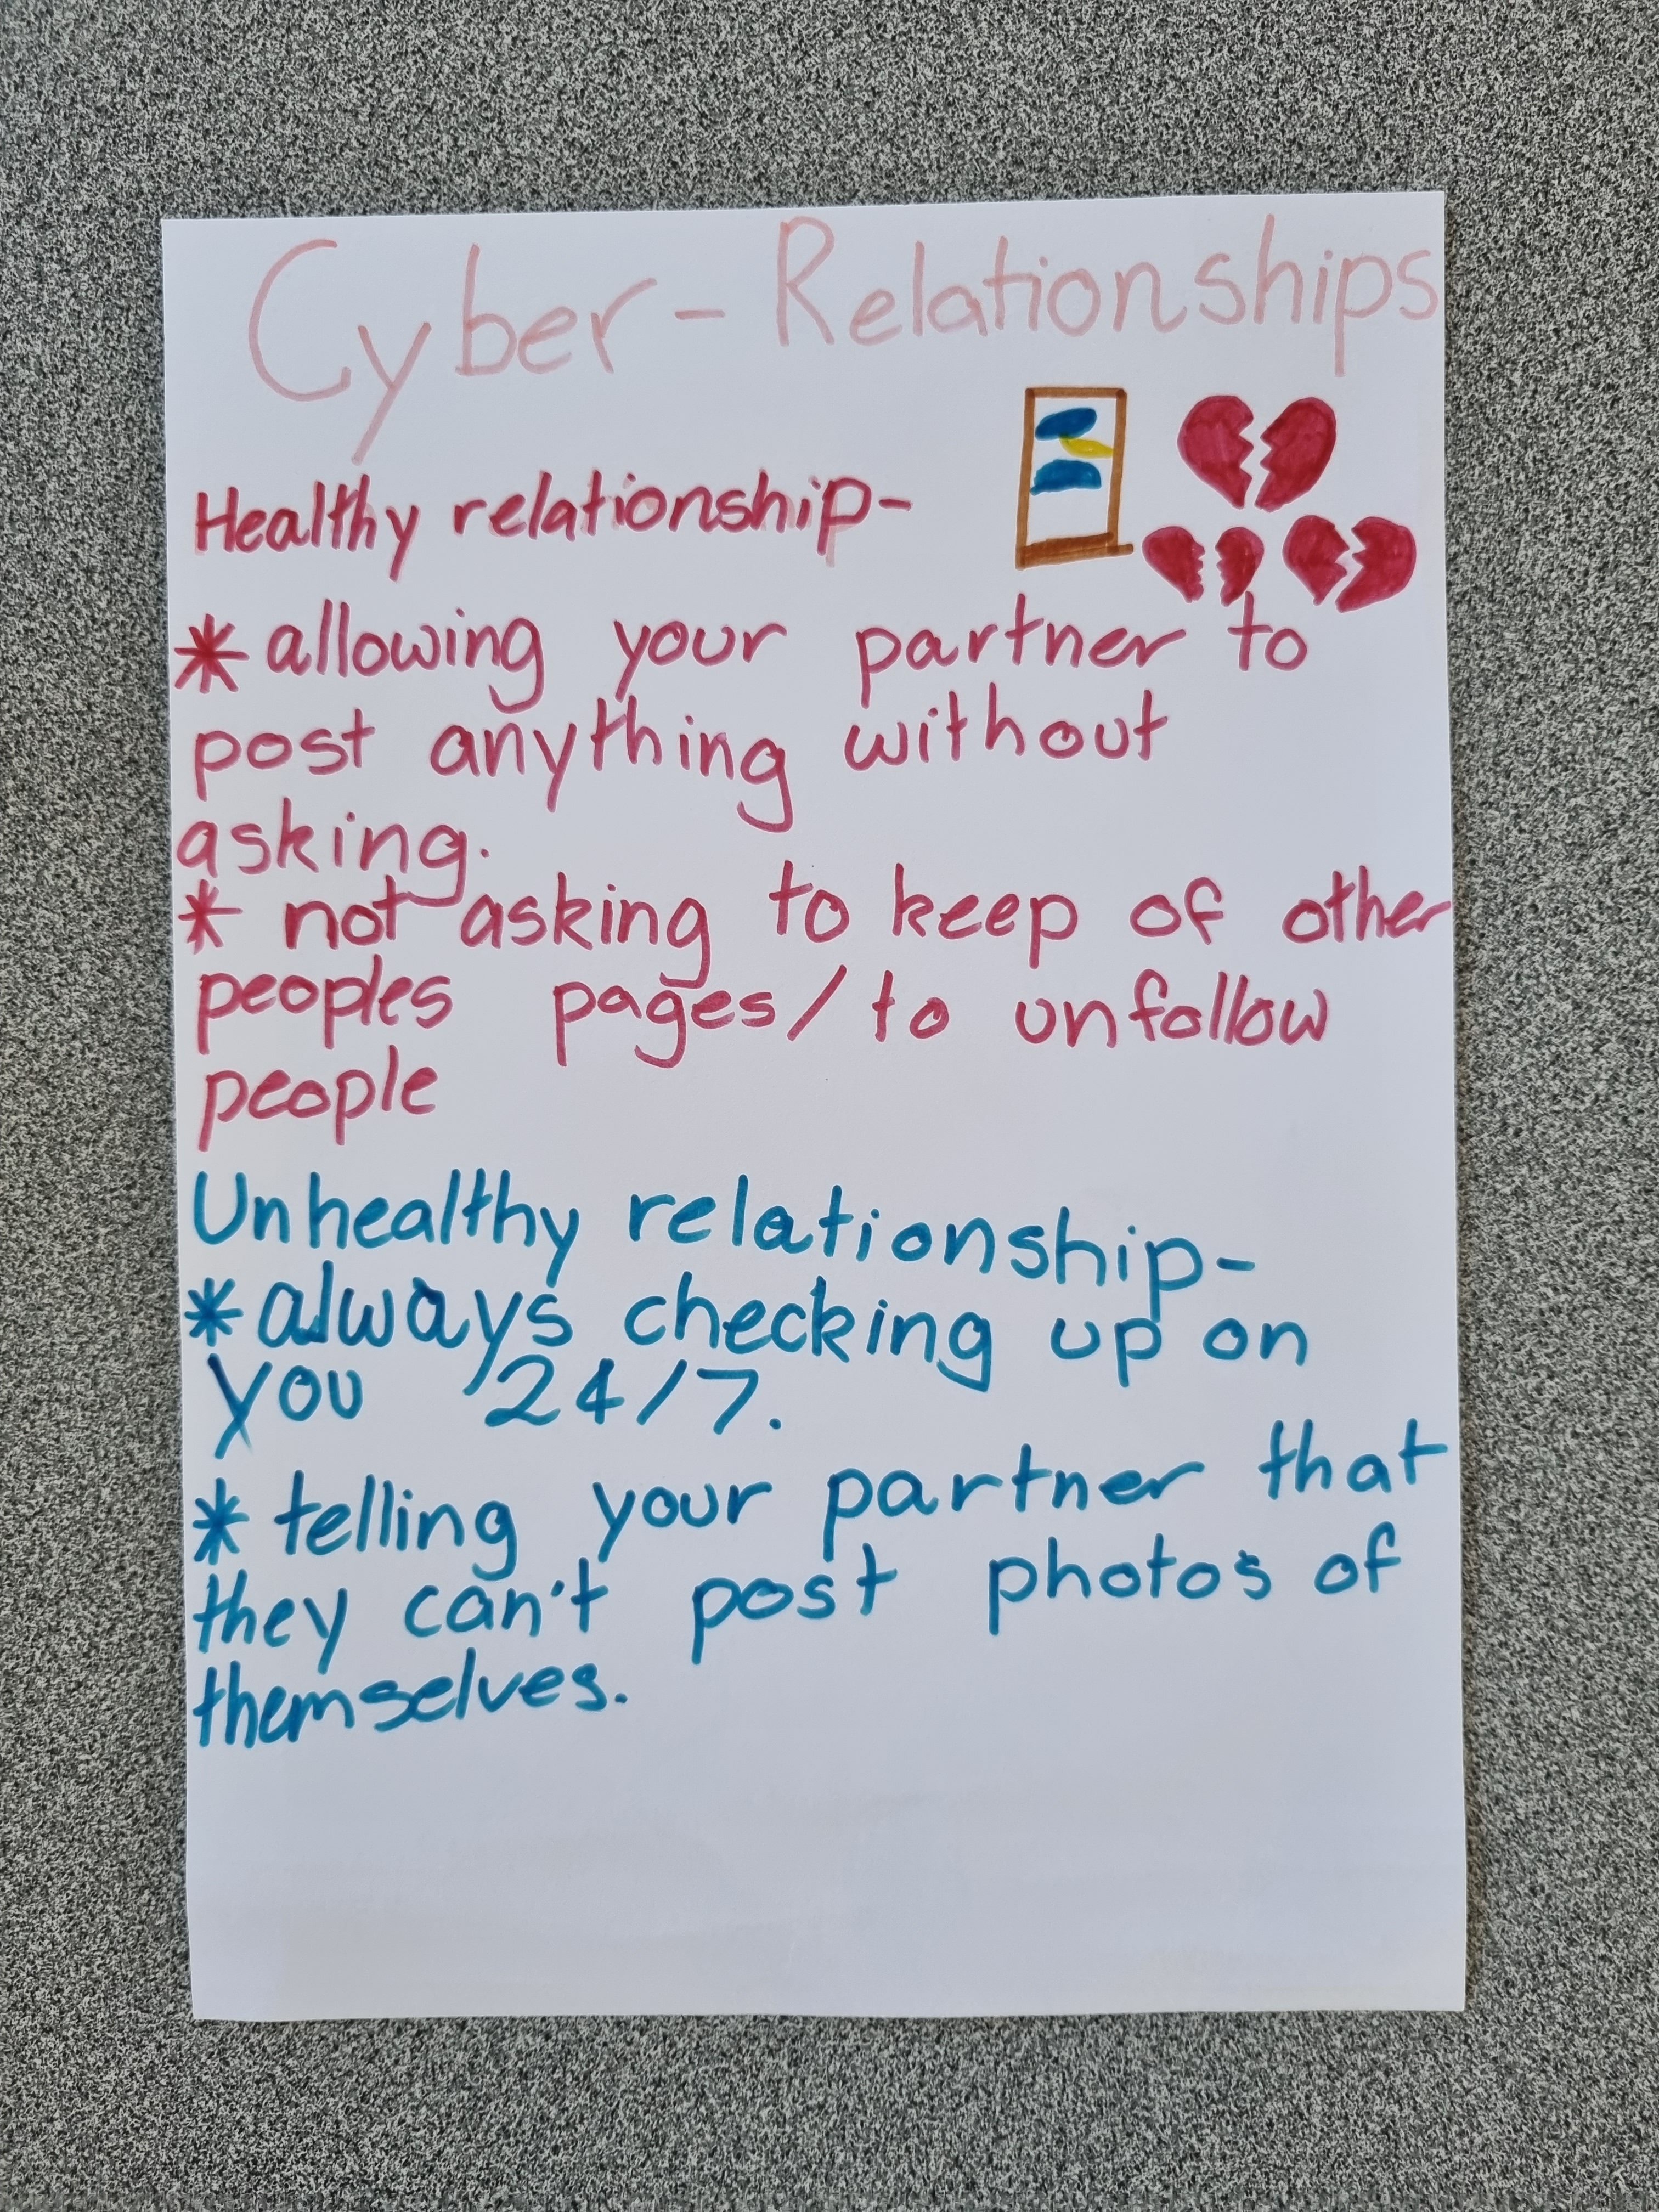 Cyber - Relationships
Healthy relationship-
* allowing your partner to
post anything without
asking.
* not asking to keep of other
peoples pages/to unfollow
people
Unhealthy relationship-
* always checking up on
you 24/7.
* telling your partner that
they can't post photos of
themselves.